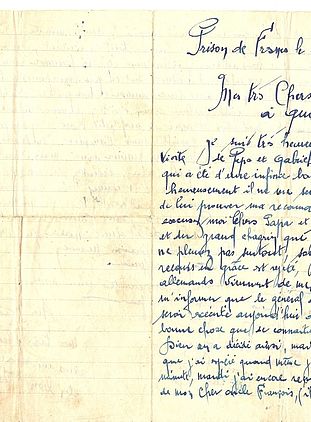 Prison de Fresnes le
Mes très Chers
à qui
Je suis très heureux
visite de Pepe et Gabriel
qui a été d'une infinie bo
heureusement il ne me
de lui prouver ma reconna
excusez moi Chers Papa et
et du grand chagrin qui
ne pleurez pas surtout,
recours en grâce est rejeté,
allemands viennent de me
m'informer que le général
serai exécuté aujourd'hui
bonne chose que je connaît
Dieu en a décidé ainsi,
que j'ai espéré quand même
minute, mardi j'ai encore
de mon Cher oncle François,